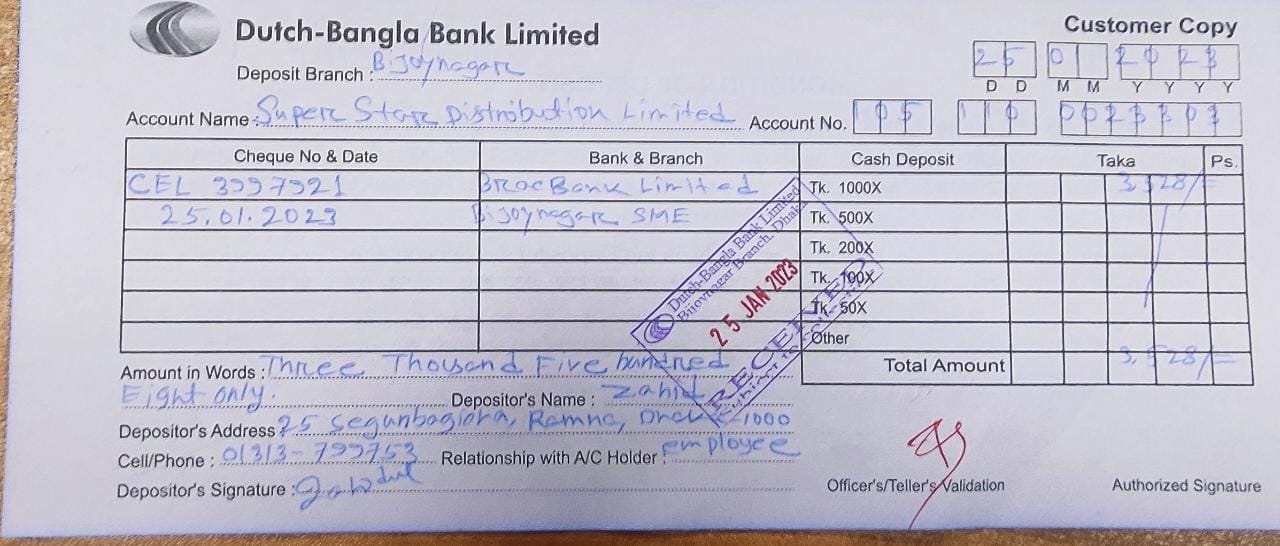 Dutch-Bangla Bank Limited
Customer Copy
Deposit Branch : Bijoynagar
25 01 2023
D D M M Y Y Y Y
Account Name : Super Star Distribution Limited Account No. 105 110
Cheque No & Date Bank & Branch Cash Deposit Taka Ps.
CEL 3997921 Brac Bank Limited Tk. 1000X 3,528/=
25.01.2023 Bijoynagar SME Tk. 500X
Tk. 200X
Tk. 100X
Tk. 50X
Other
Dutch-Bangla Bank Limited
Bijoynagar Branch. Dhaka
25 JAN 2023
RECEIVED
Total Amount 3,528/=
Amount in Words : Three Thousand Five hundred
Eight only. Depositor's Name : Zahid
Depositor's Address 25 Segunbagicha, Ramna, Dhaka-1000
Cell/Phone : 01313-799753 Relationship with A/C Holder : employee
Depositor's Signature :
Officer's/Teller's Validation Authorized Signature